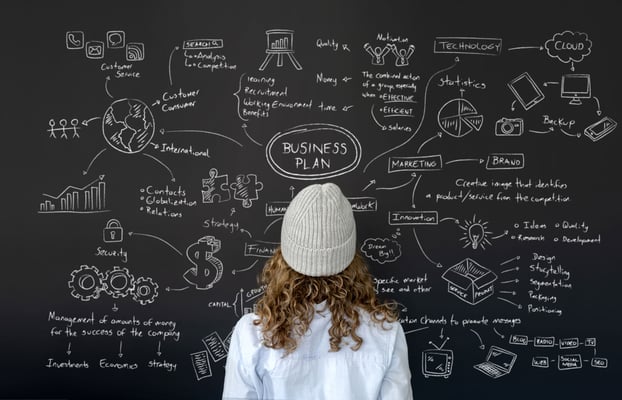 Customer
Service
SEARCH
Analysis
Competition
Customer
Consumer
International
Contacts
Globalization
Relations
Learning
Recruitment
Working Environment
Benefits
Quality
Money
time
Motivation
The combined action
of a group, especially
when
EFFECTIVE
EFFICIENT
Salaries
TECHNOLOGY
CLOUD
Statistics
Backup
BUSINESS
PLAN
MARKETING
BRAND
Creative image that identifies
a product/service from the competition
Strategy
Innovation
Ideas
Quality
Research
Development
Dream
Big!!
Security
CAPITAL
SERVICE
PRODUCT
Design
Storytelling
Segmentation
Packaging
Positioning
Specific market
see and other
Management of amounts of money
for the success of the company
Investments
Economics
strategy
Channels to present messages
BLOG
RADIO
VIDEO
TV
WEB
SOCIAL
MEDIA
SEO